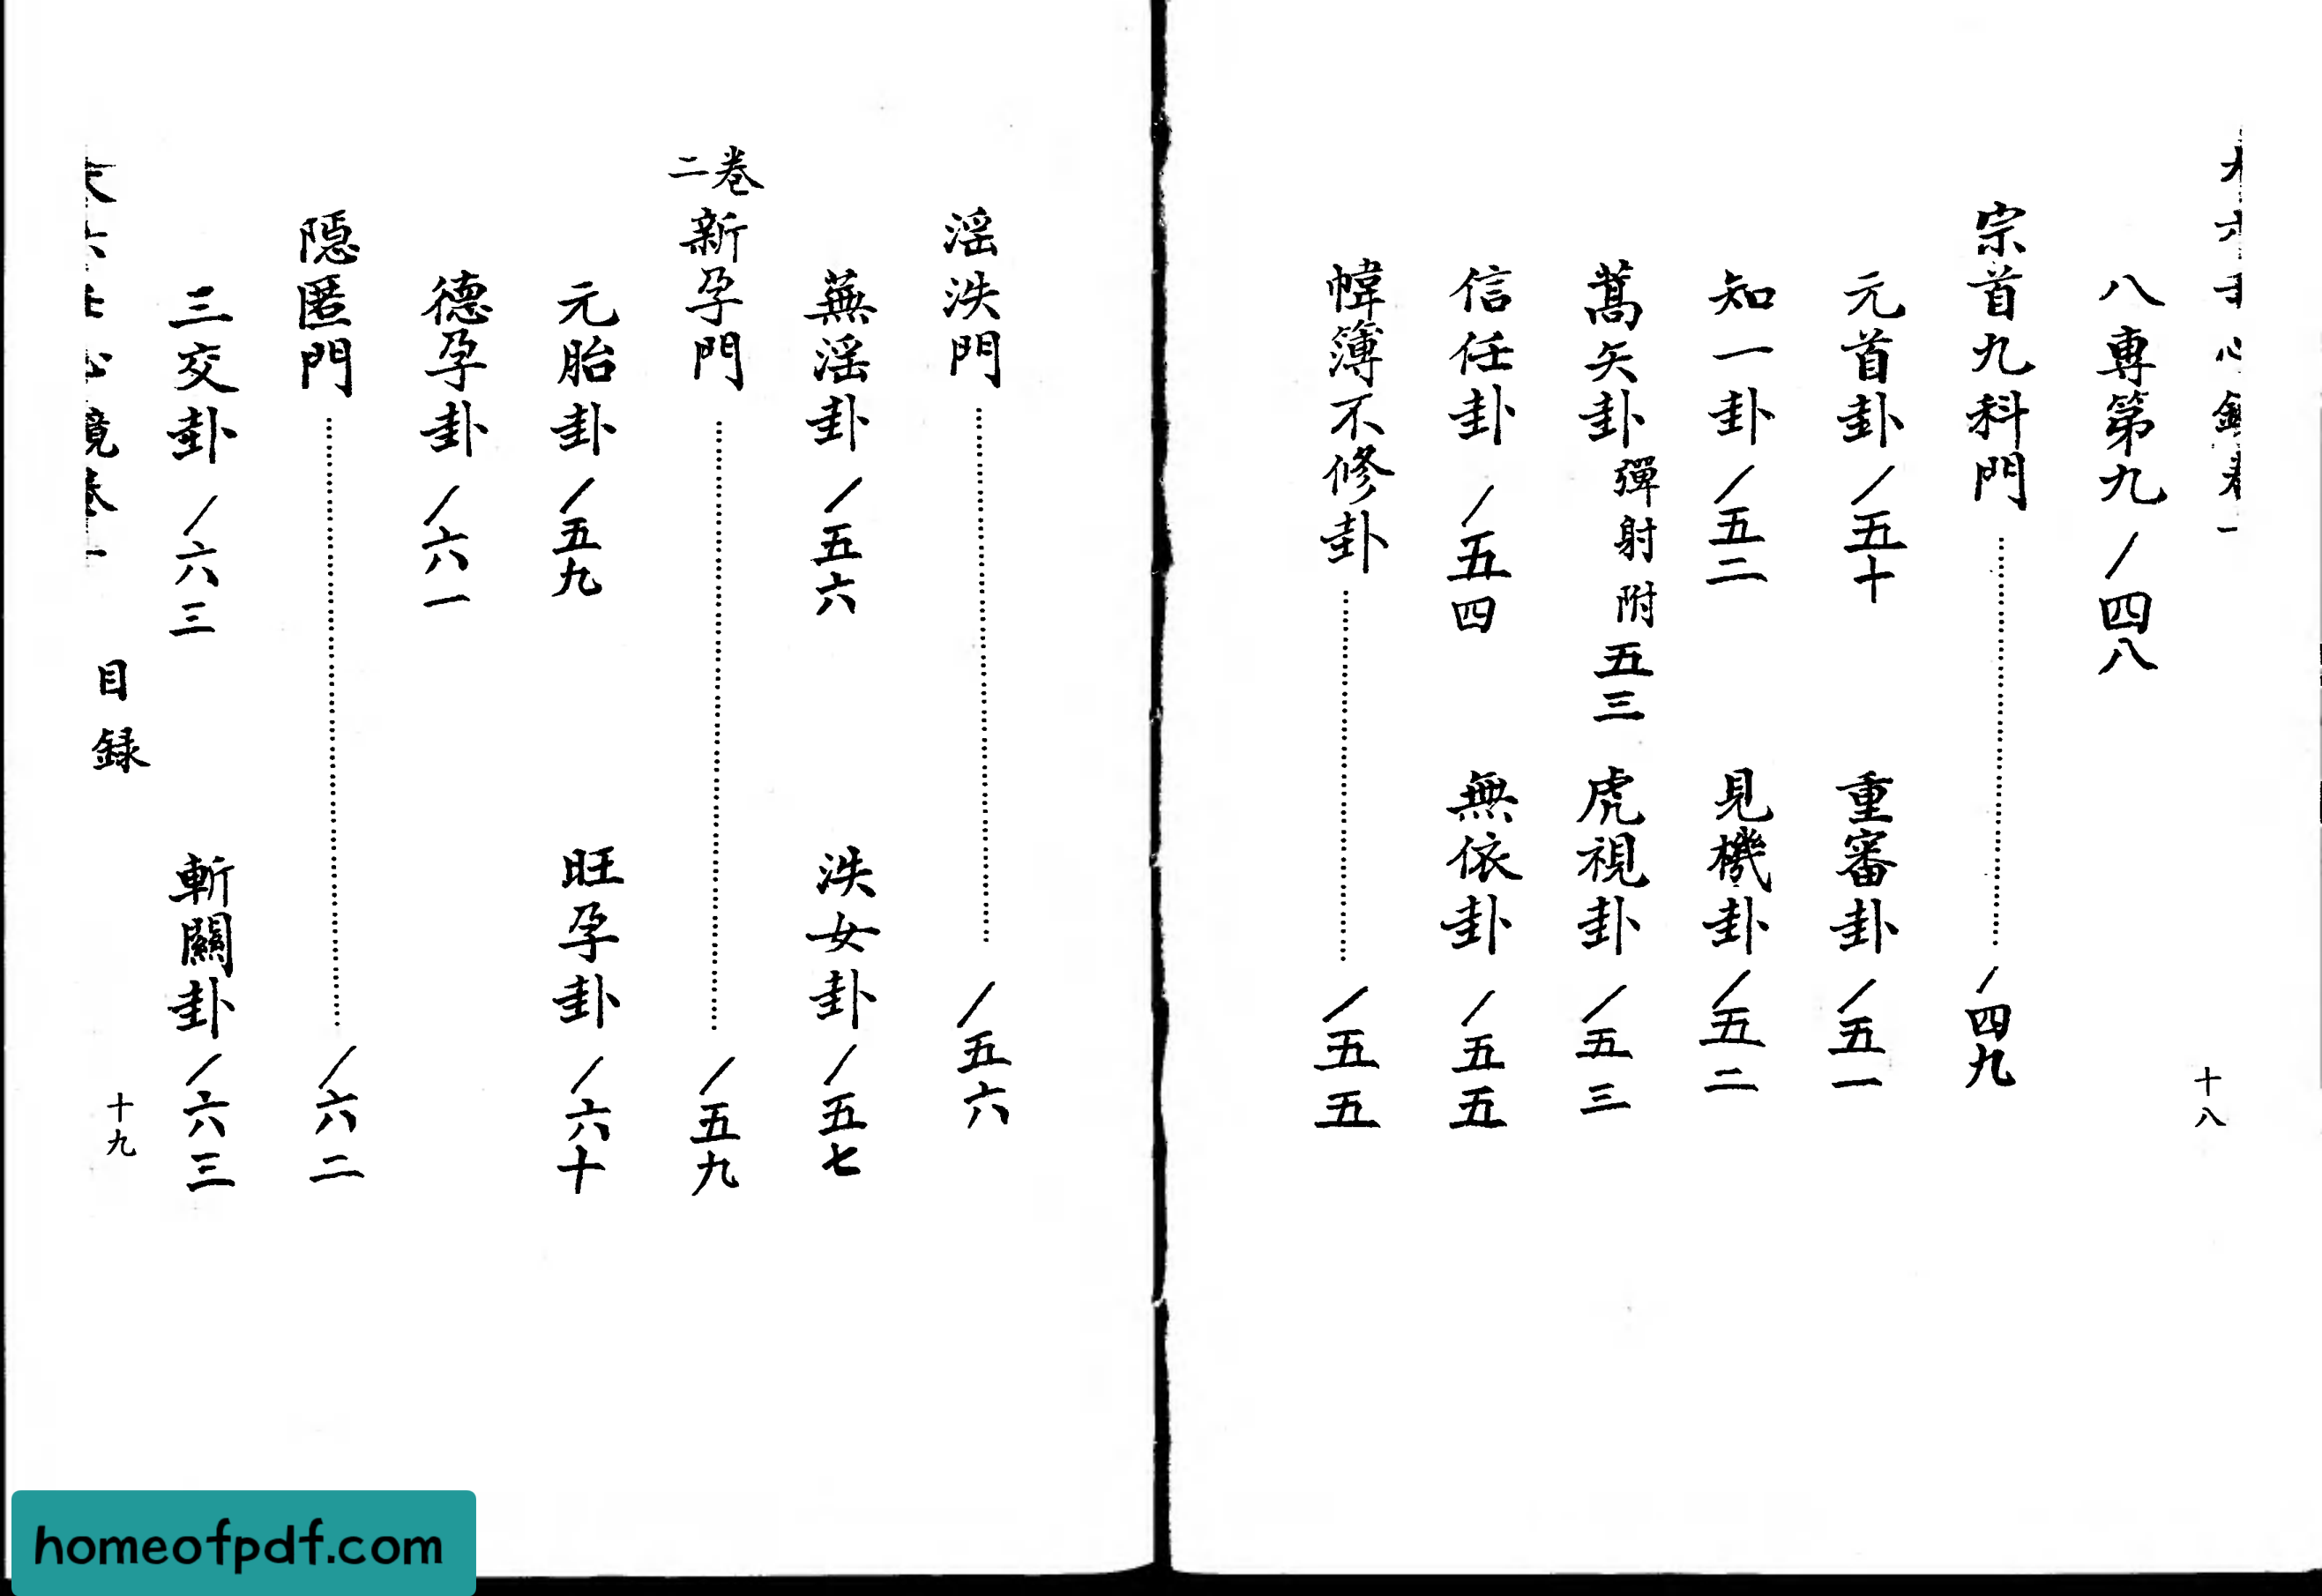 八專第九／四八
宗首九科門／四九
元首卦／五十 重審卦／五一
知一卦／五二 見機卦／五二
蒿矢卦彈射附五三 虎視卦／五三
信任卦／五四 無依卦／五五
幃簿不修卦／五五
十八
淫泆門／五六
蕪淫卦／五六 泆女卦／五七
二卷 新孕門／五九
元胎卦／五九 旺孕卦／六十
德孕卦／六一
隱匿門／六二
三交卦／六三 斬關卦／六三
目録 十九
homeofpdf.com